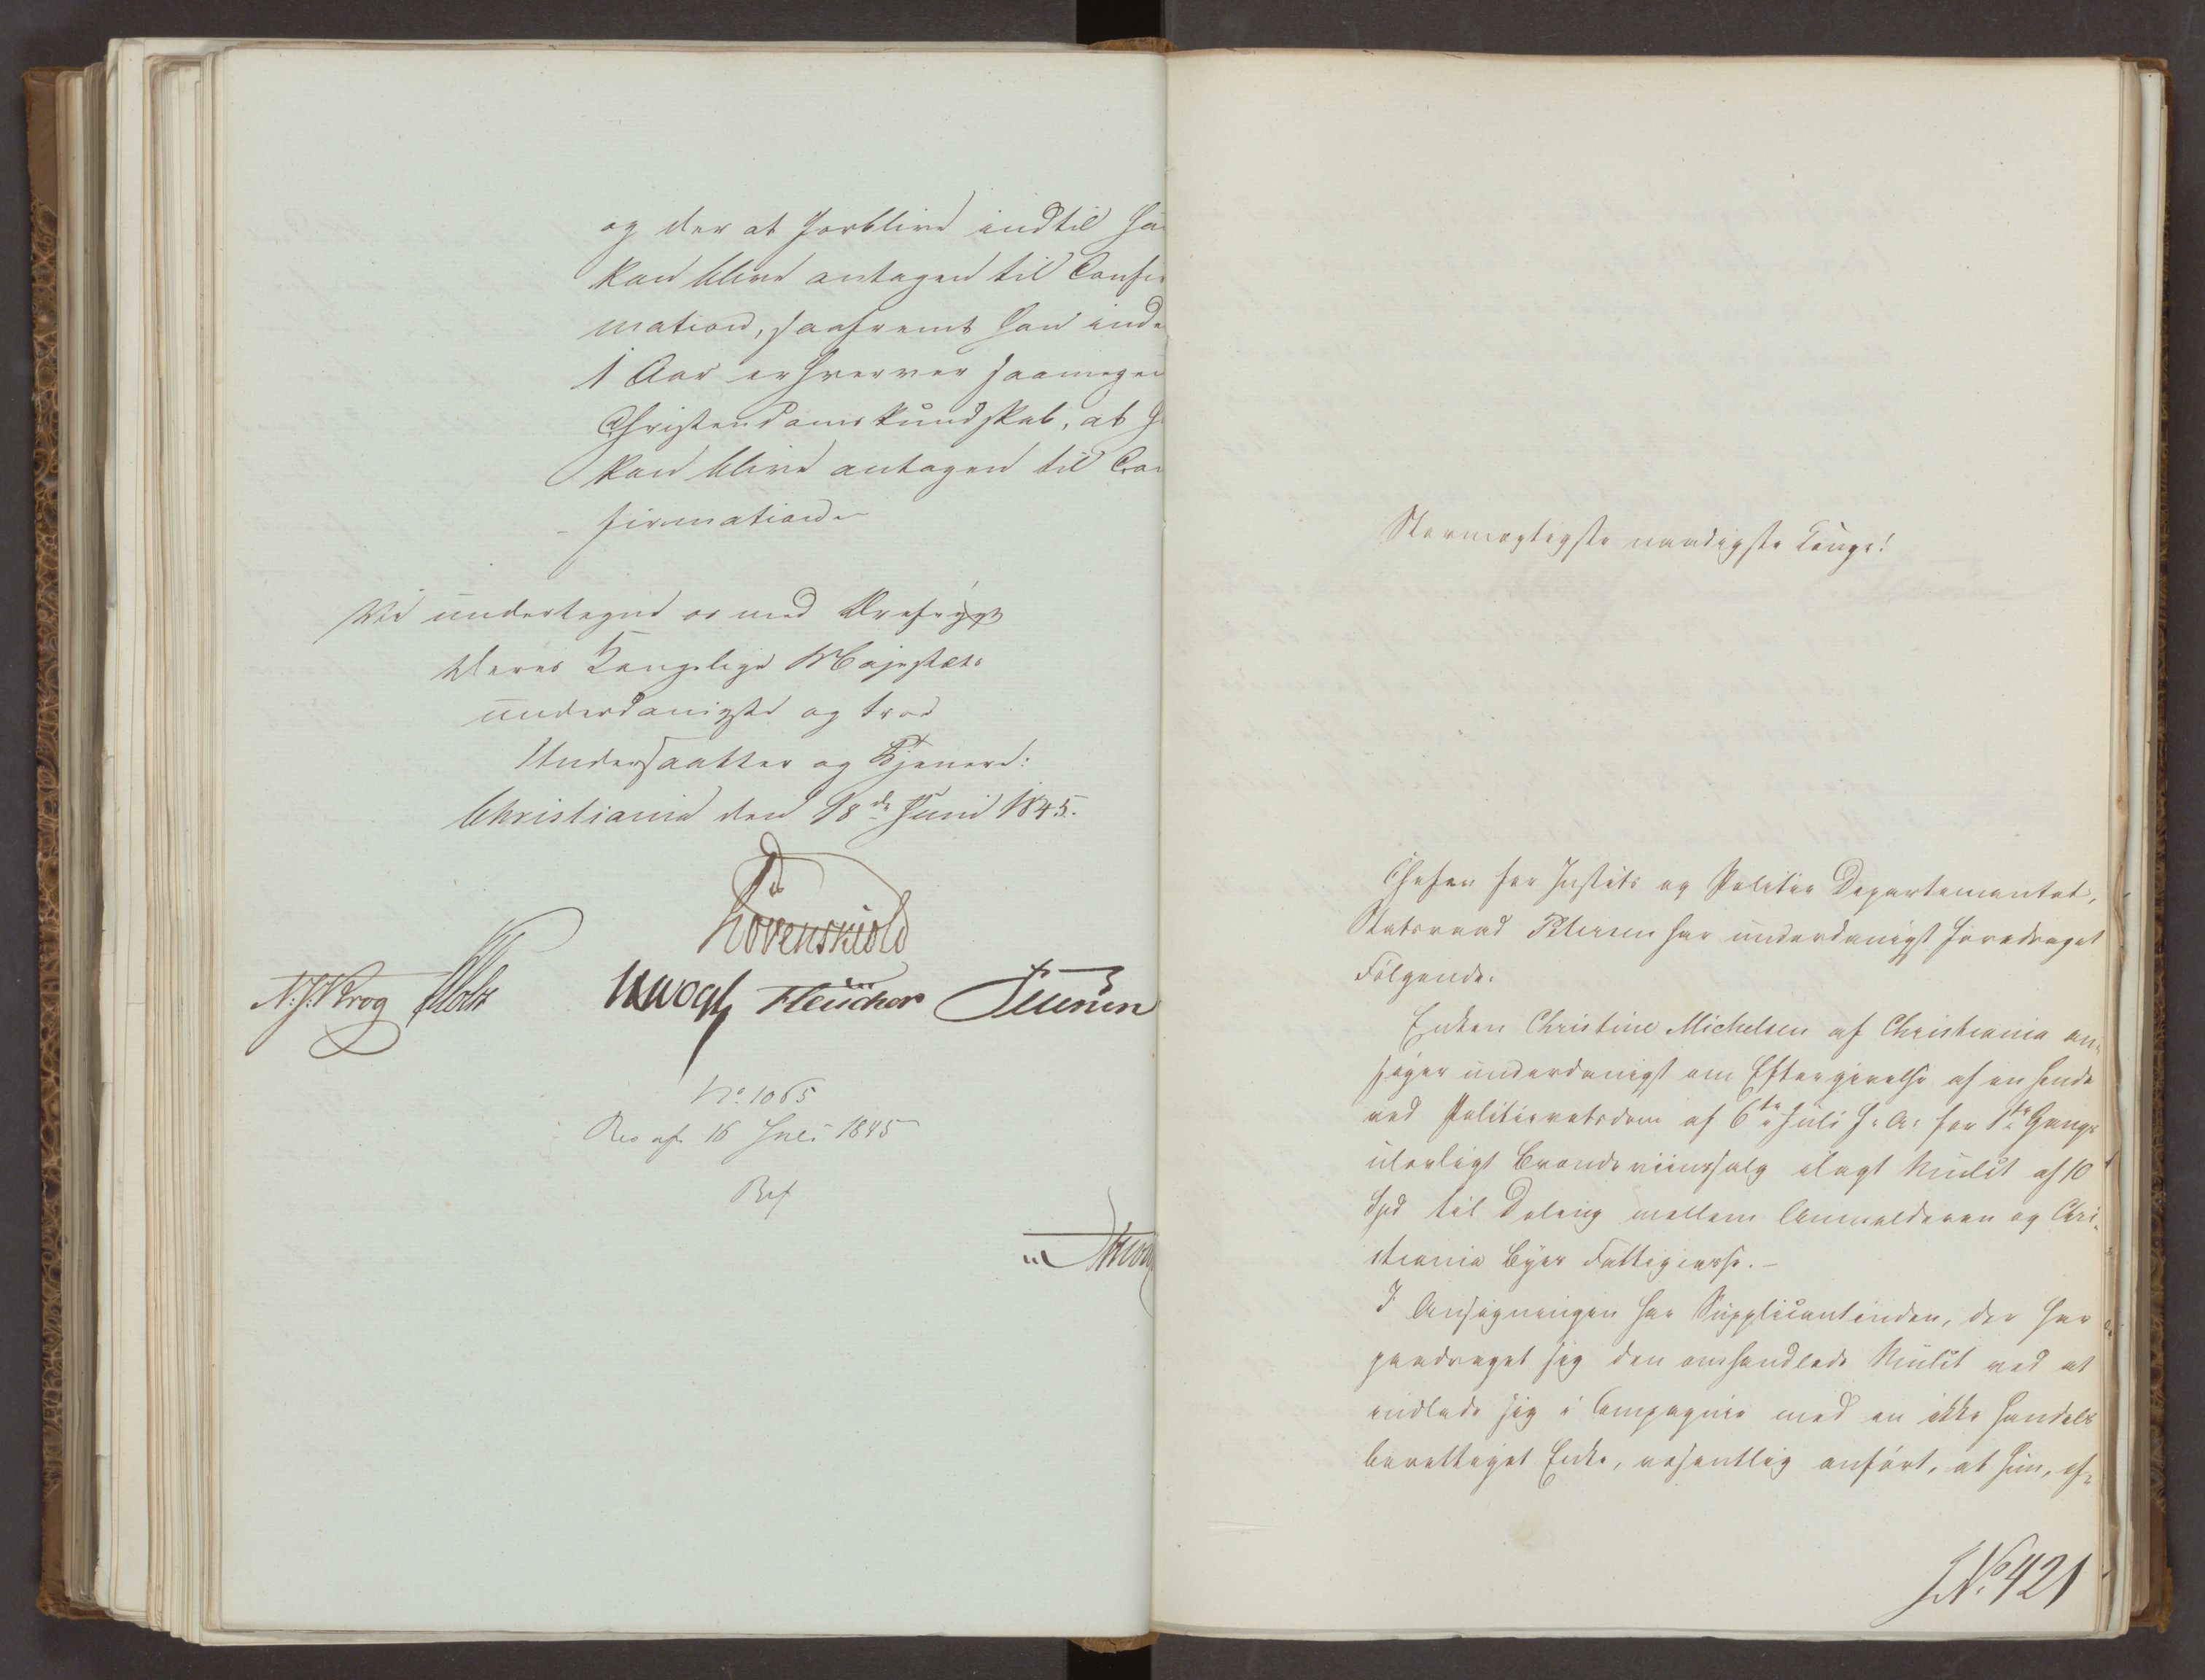 og der at forblive indtil ha
kan blive antagen til Confir
mation, saafremt han inde
1 Aar erhverver saamegen
Christendomskundskab, at h
kan blive antagen til Con
firmation.
Vi undertegne os med Ærefrygt
Deres Kongelige Majestæts
underdanigste og troe
Undersaatter og Tjenere:
Christiania den 18de Juni 1845.
Løvenskiold
N. J. Krog Holst Vogt Fleischer Petersen
No. 1065
Res af 16 Juli 1845
Bef
Stormægtigste naadigste Konge!
Chefen for Justits og Politie Departementet,
Statsraad Petersen har underdanigst foredraget
Følgende:
Enken Christine Michelsen af Christiania an-
søger underdanigst om Eftergivelse af en hende
ved Politieretsdom af 6te Juli f. A. for 1ste Gangs
ulovligt Brændeviinssalg ilagt Mulct af 10
Spd til Deling mellem Anmelderen og Chri-
stiania Byes Fattigcasse.-
I Ansøgningen har Supplicantinden, der har
paadraget sig den omhandlede Mulct ved at
indlade sig i Compagnie med en ikke handels
berettiget Enke, væsentlig anført, at hun, ef-
J. No. 421